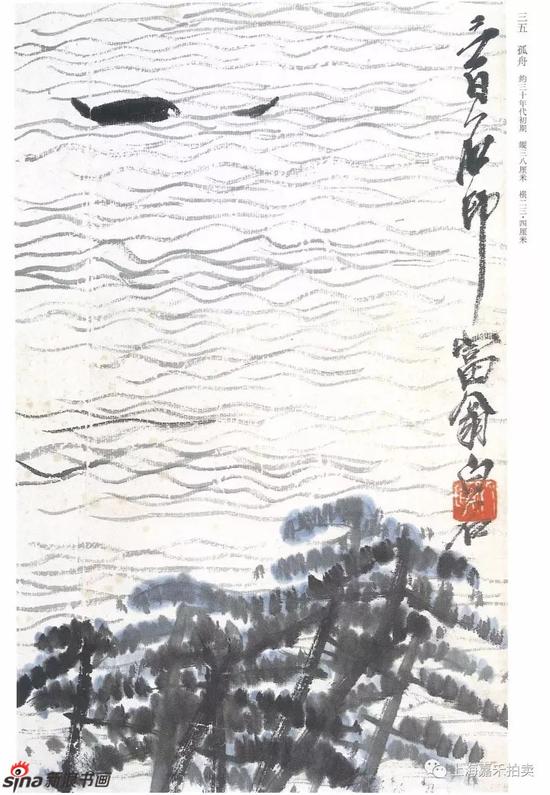 三五 孤舟 約三十年代初期 縱三八厘米 橫二三·四厘米
三百石印富翁白石
sina新浪书画
上海嘉禾拍卖